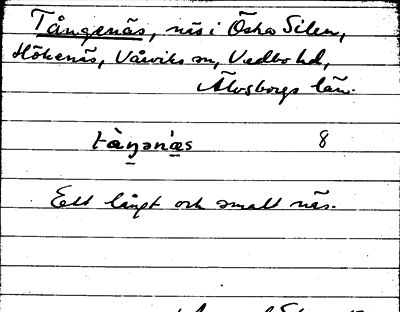 Tångenäs, näs i Östra Silen,
Hökenäs, Vårviks sn, Vedbo hd,
Älvsborgs län.
tàŋənæ̀s 8
Ett långt och smalt näs.